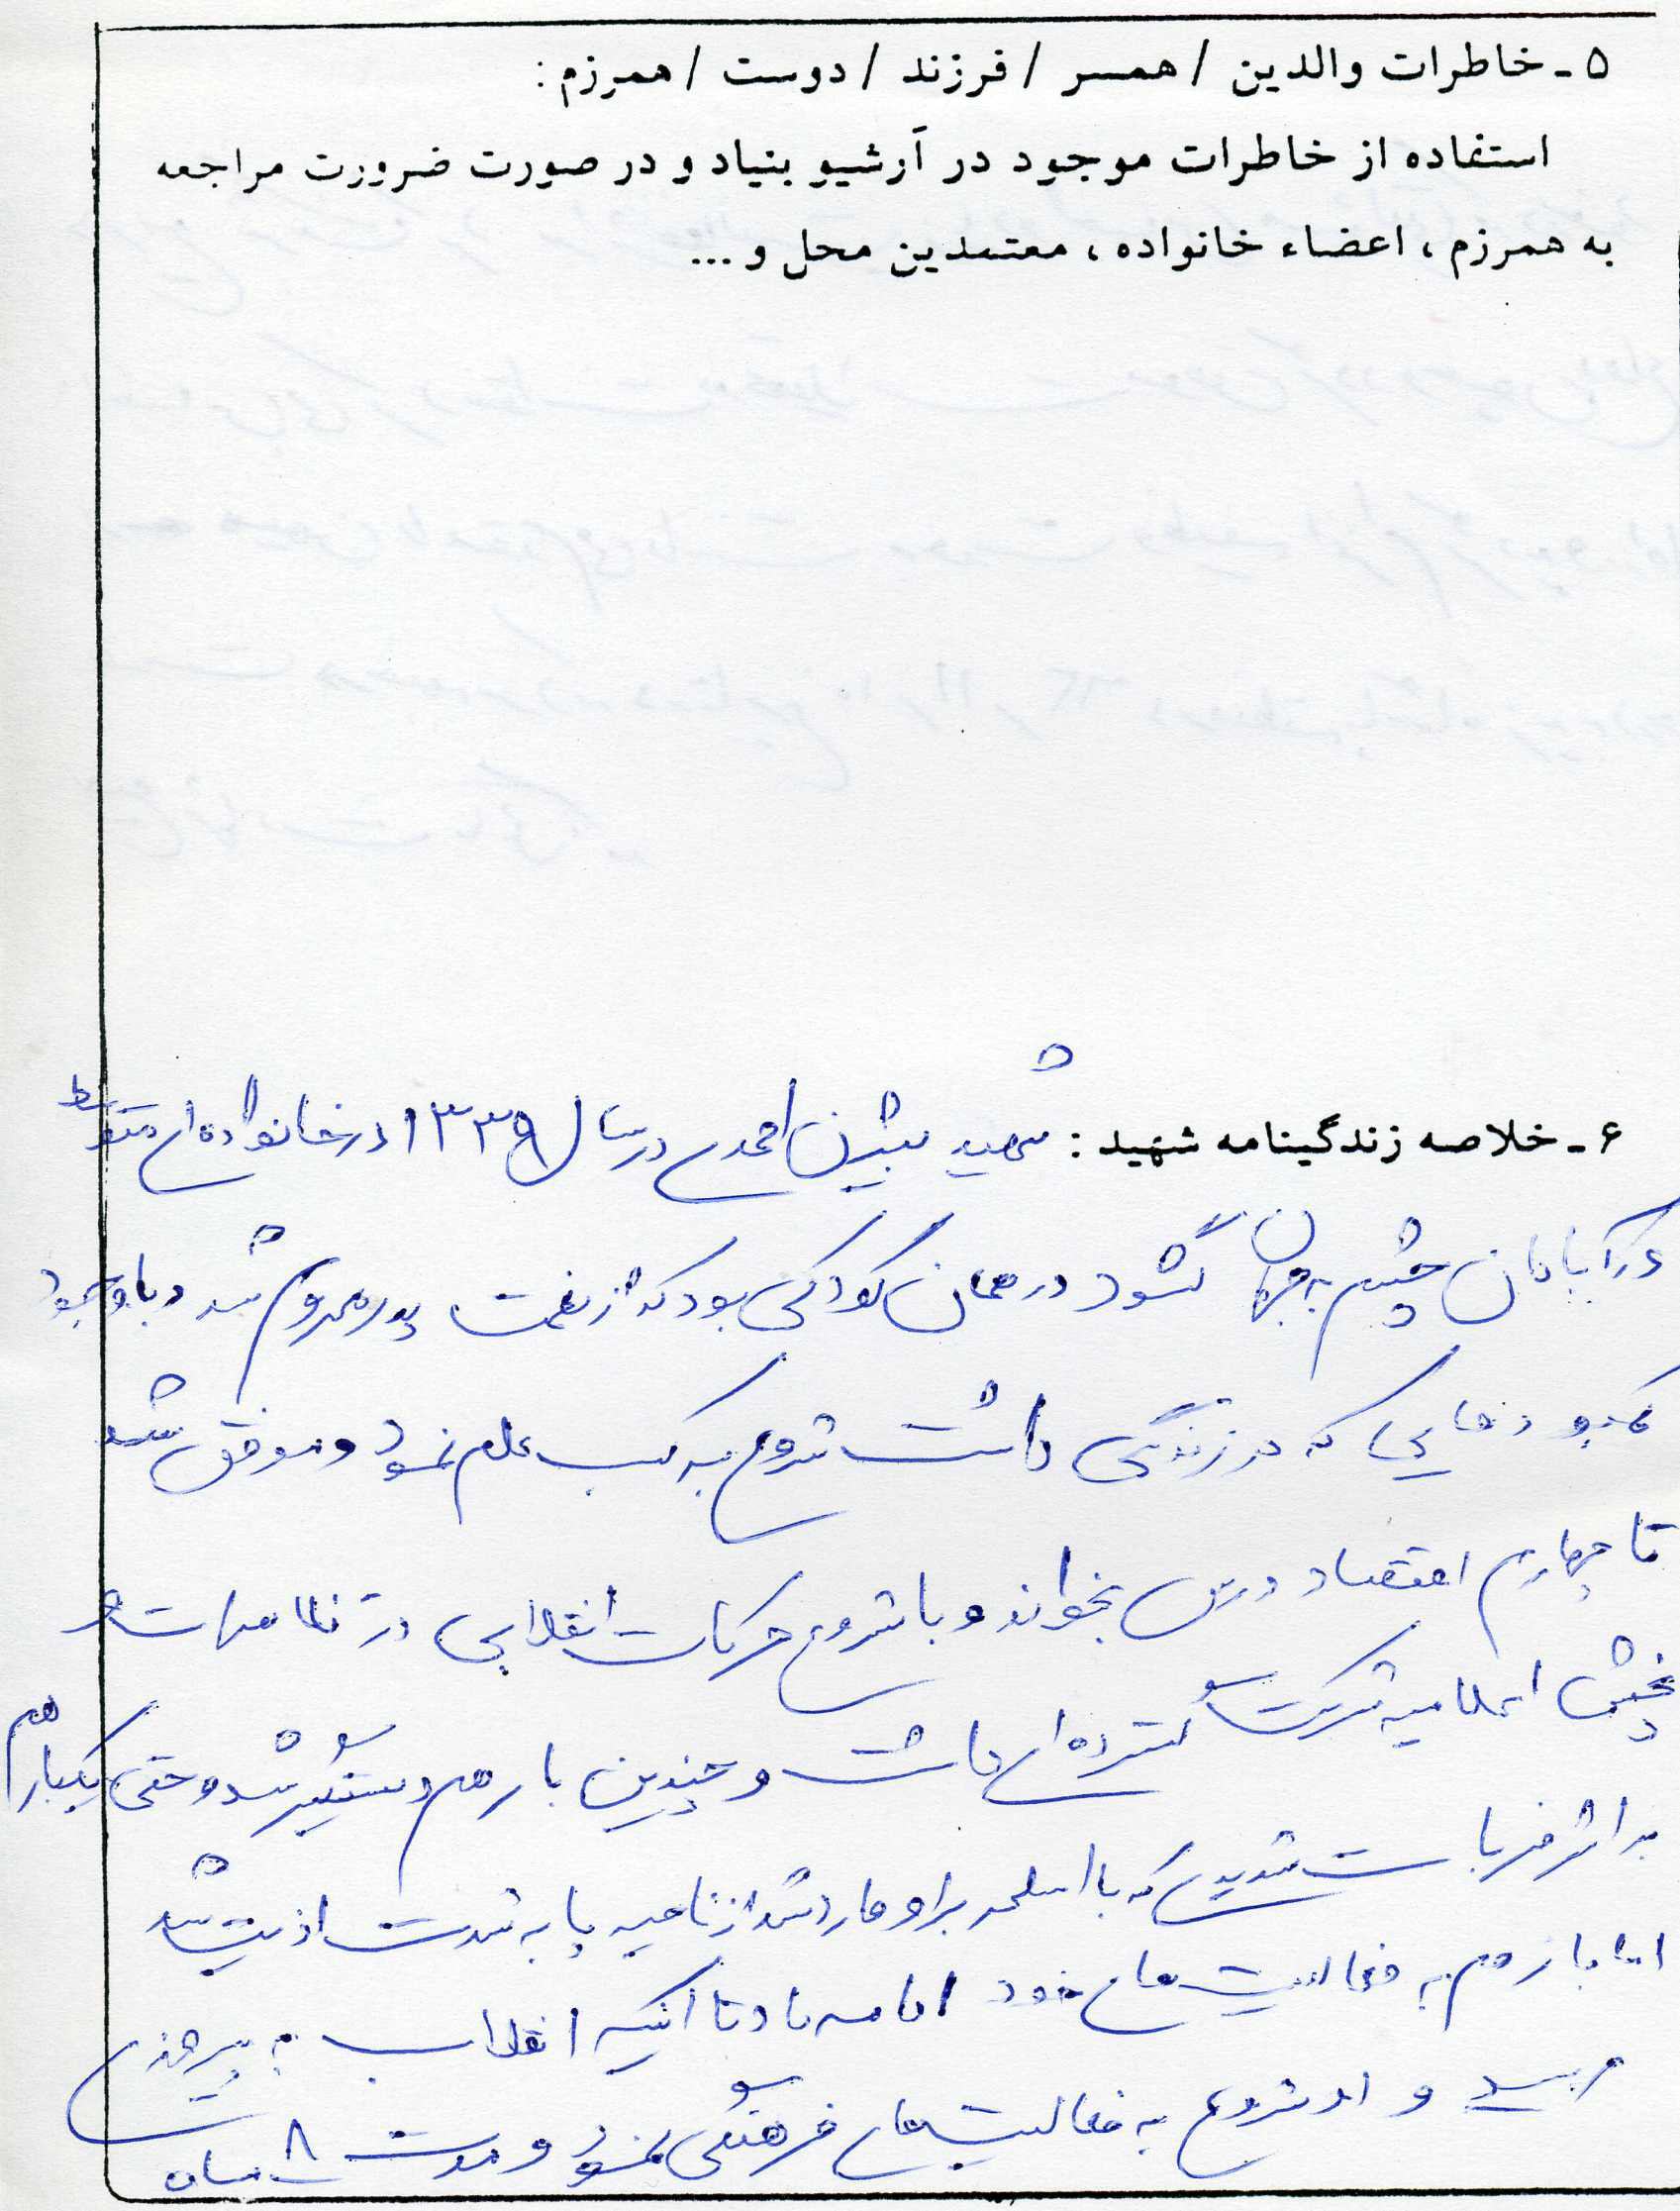 ۵ - خاطرات والدین / همسر / فرزند / دوست / همرزم :
استفاده از خاطرات موجود در آرشیو بنیاد و در صورت ضرورت مراجعه
به همرزم ، اعضاء خانواده ، معتمدین محل و ...
۶ - خلاصه زندگینامه شهید : شهید بیژن احمدی در سال ۱۳۳۹ در خانواده ای متوسط
در آبادان چشم به جهان گشود در همان کودکی بود که از نعمت پدر محروم شد و با وجود
کمبودهایی که در زندگی داشت شروع به کسب علم نمود و موفق شد
تا چهارم اقتصاد درس بخواند و با شروع حرکات انقلابی در تظاهرات و
پخش اعلامیه شرکت گسترده ای داشت و چندین بار هم دستگیر شد و حتی یکبار هم
بر اثر ضربات شدیدی که با اسلحه بر او وارد شد از ناحیه پا به شدت اذیت شد
اما باز هم به فعالیت های خود ادامه داد تا اینکه انقلاب به پیروزی
رسید و او شروع به فعالیت های فرهنگی نمود و مدت ۸ ماه